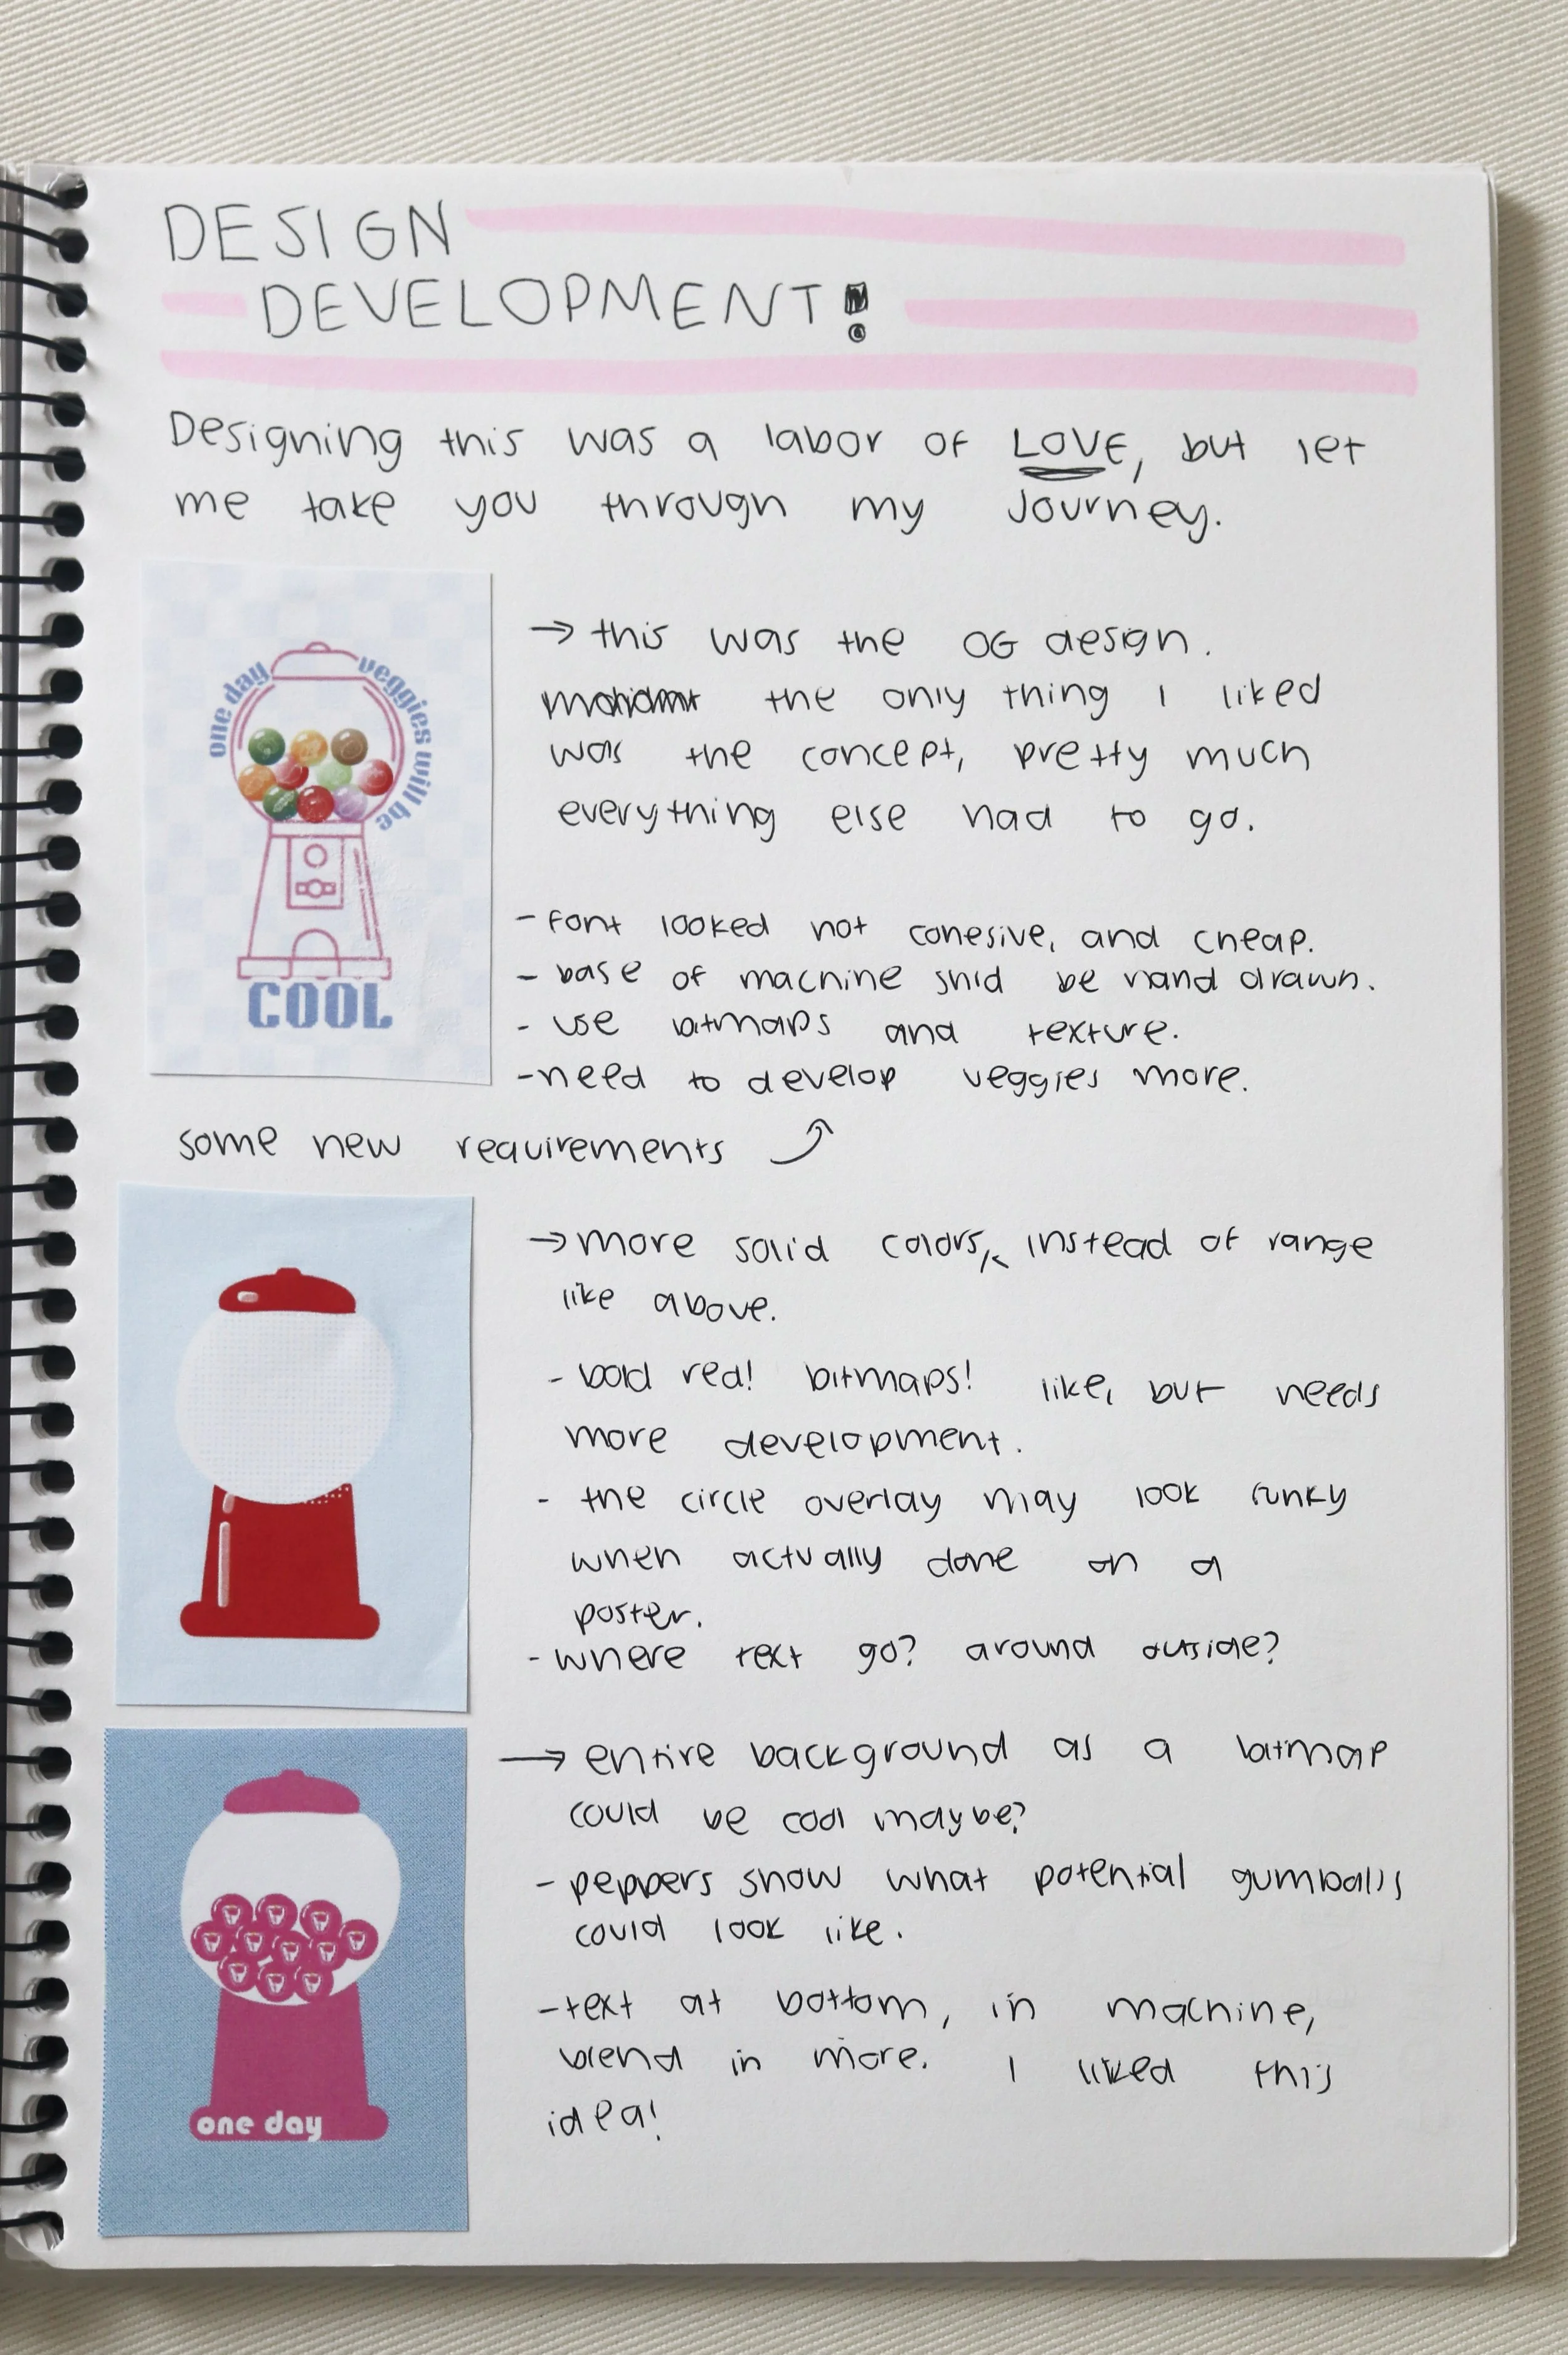 DESIGN
DEVELOPMENT!
Designing this was a labor of LOVE, but let
me take you through my journey.
one day
veggies will be
COOL
→ this was the OG design.
the only thing I liked
was the concept, pretty much
everything else had to go.
- font looked not cohesive, and cheap.
- base of machine shld be hand drawn.
- use bitmaps and texture.
- need to develop veggies more.
some new requirements
→ more solid colors, instead of range
like above.
- bold red! bitmaps! like, but needs
more development.
- the circle overlay may look funky
when actually done on a
poster.
- where text go? around outside?
→ entire background as a bitmap
could be cool maybe?
- peppers show what potential gumballs
could look like.
- text at bottom, in machine,
blend in more. I liked this
idea!
one day